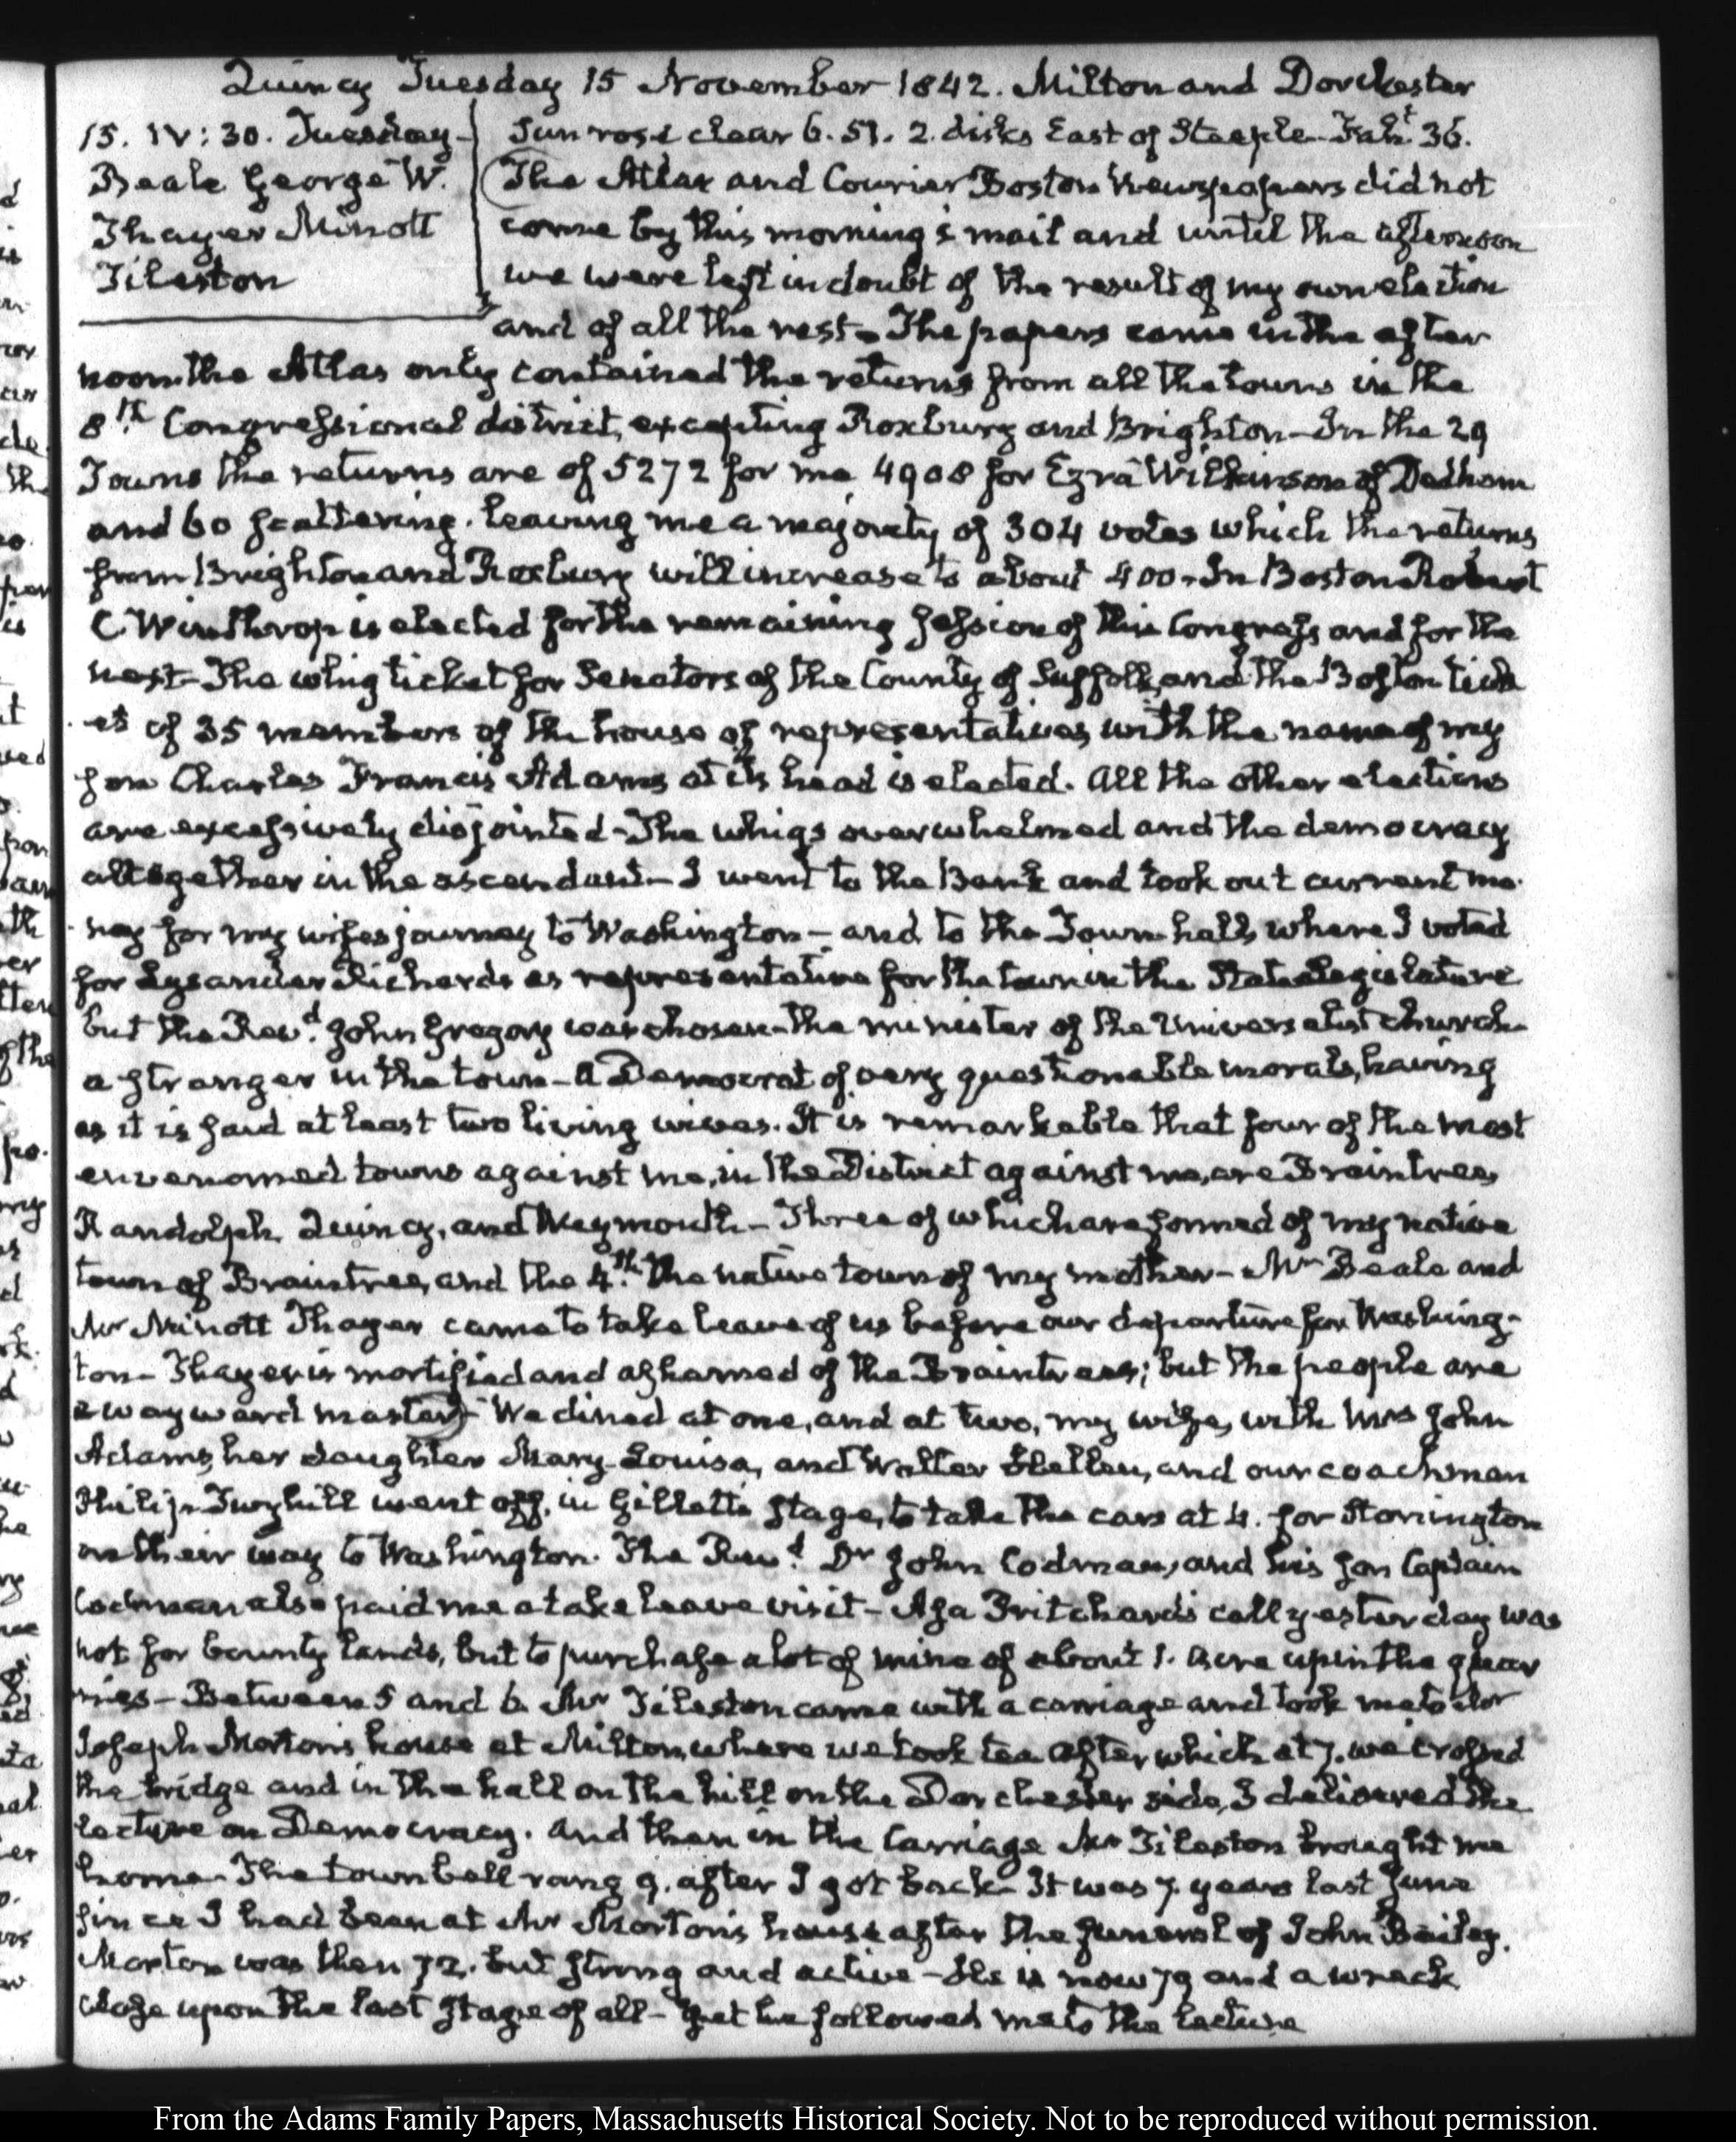 Quincy Tuesday 15 November 1842. Milton and Dorchester
15. IV: 30. Tuesday
Beale George W.
Thayer Minott
Tileston
Sun rose clear 6. 51. 2. disks East of Steeple Fah.t 36.
The Atlas and Courier Boston Newspapers did not
come by this morning's mail and until the afternoon
we were left in doubt of the result of my own election
and of all the rest. The papers came in the after
noon. the Atlas only contained the returns from all the towns in the
8th Congressional district, excepting Roxbury and Brighton - In the 29
Towns the returns are of 5272 for me 4908 for Ezra Wilkinson of Dedham
and 60 scattering. leaving me a majority of 304 votes which the returns
from Brighton and Roxbury will increase to about 400 - In Boston Robert
C Winthrop is elected for the remaining session of this Congress and for the
next - The whig ticket for Senators of the County of Suffolk, and the Boston tick
et of 35 members of the house of representatives with the name of my
son Charles Francis Adams at its head is elected. All the other elections
are excessively disjointed - The whigs overwhelmed and the democracy
altogether in the ascendant - I went to the Bank and took out current mo-
ney for my wife's journey to Washington - and to the Town hall, where I voted
for Lysander Richards as representative for the town in the State Legislature
but the Revd. John Gregory was chosen - the minister of the Universalist church
a stranger in the town - a Democrat of very questionable morals, having
as it is said at least two living wives. It is remarkable that four of the most
envenomed towns against me, in the District against me, are Braintree,
Randolph, Quincy, and Weymouth - Three of which are formed of my native
town of Braintree, and the 4th. the native town of my mother - Mr Beale and
Mr Minott Thayer came to take leave of us before our departure for Washing-
ton - Thayer is mortified and ashamed of the Braintrees; but the people are
a wayward master - We dined at one, and at two, my wife, with Mrs John
Adams, her daughter Mary Louisa, and Walter Hellen, and our coachman
Philip Twyhill went off, in Gillett's stage, to take the cars at 4. for Stonington
on their way to Washington. The Revd Dr John Codman, and his son Captain
Codman also paid me a take leave visit - Asa Pritchard's call yesterday was
not for bounty lands, but to purchase a lot of mine of about 1. Acre up in the quar
ries - Between 5 and 6 Mr Tileston came with a carriage and took me to Mr
Joseph Morton's house at Milton, where we took tea after which at 7. we crossed
the bridge and in the hall on the hill on the Dorchester side, I delivered the
lecture on Democracy. and then in the carriage Mr Tileston brought me
home - The town bell rang 9. after I got back - It was 7. years last June
since I had been at Mr Morton's house after the funeral of John Bailey.
Morton was then 72. but strong and active - He is now 79 and a wreck
close upon the last stage of all - yet he followed me to the lecture
From the Adams Family Papers, Massachusetts Historical Society. Not to be reproduced without permission.